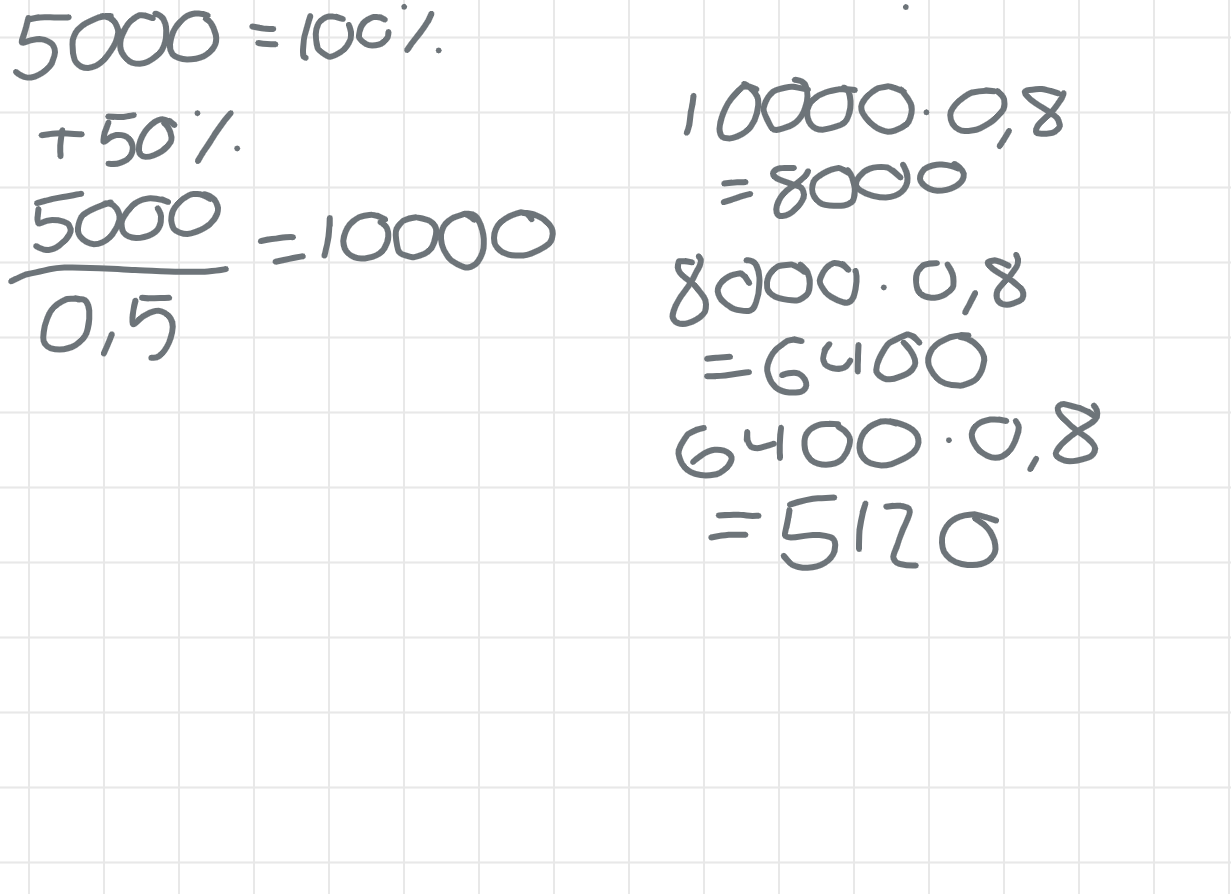 5000 = 100%
+ 50%
5000
0,5
= 10000
10000 · 0,8
= 8000
8000 · 0,8
= 6400
6400 · 0,8
= 5120